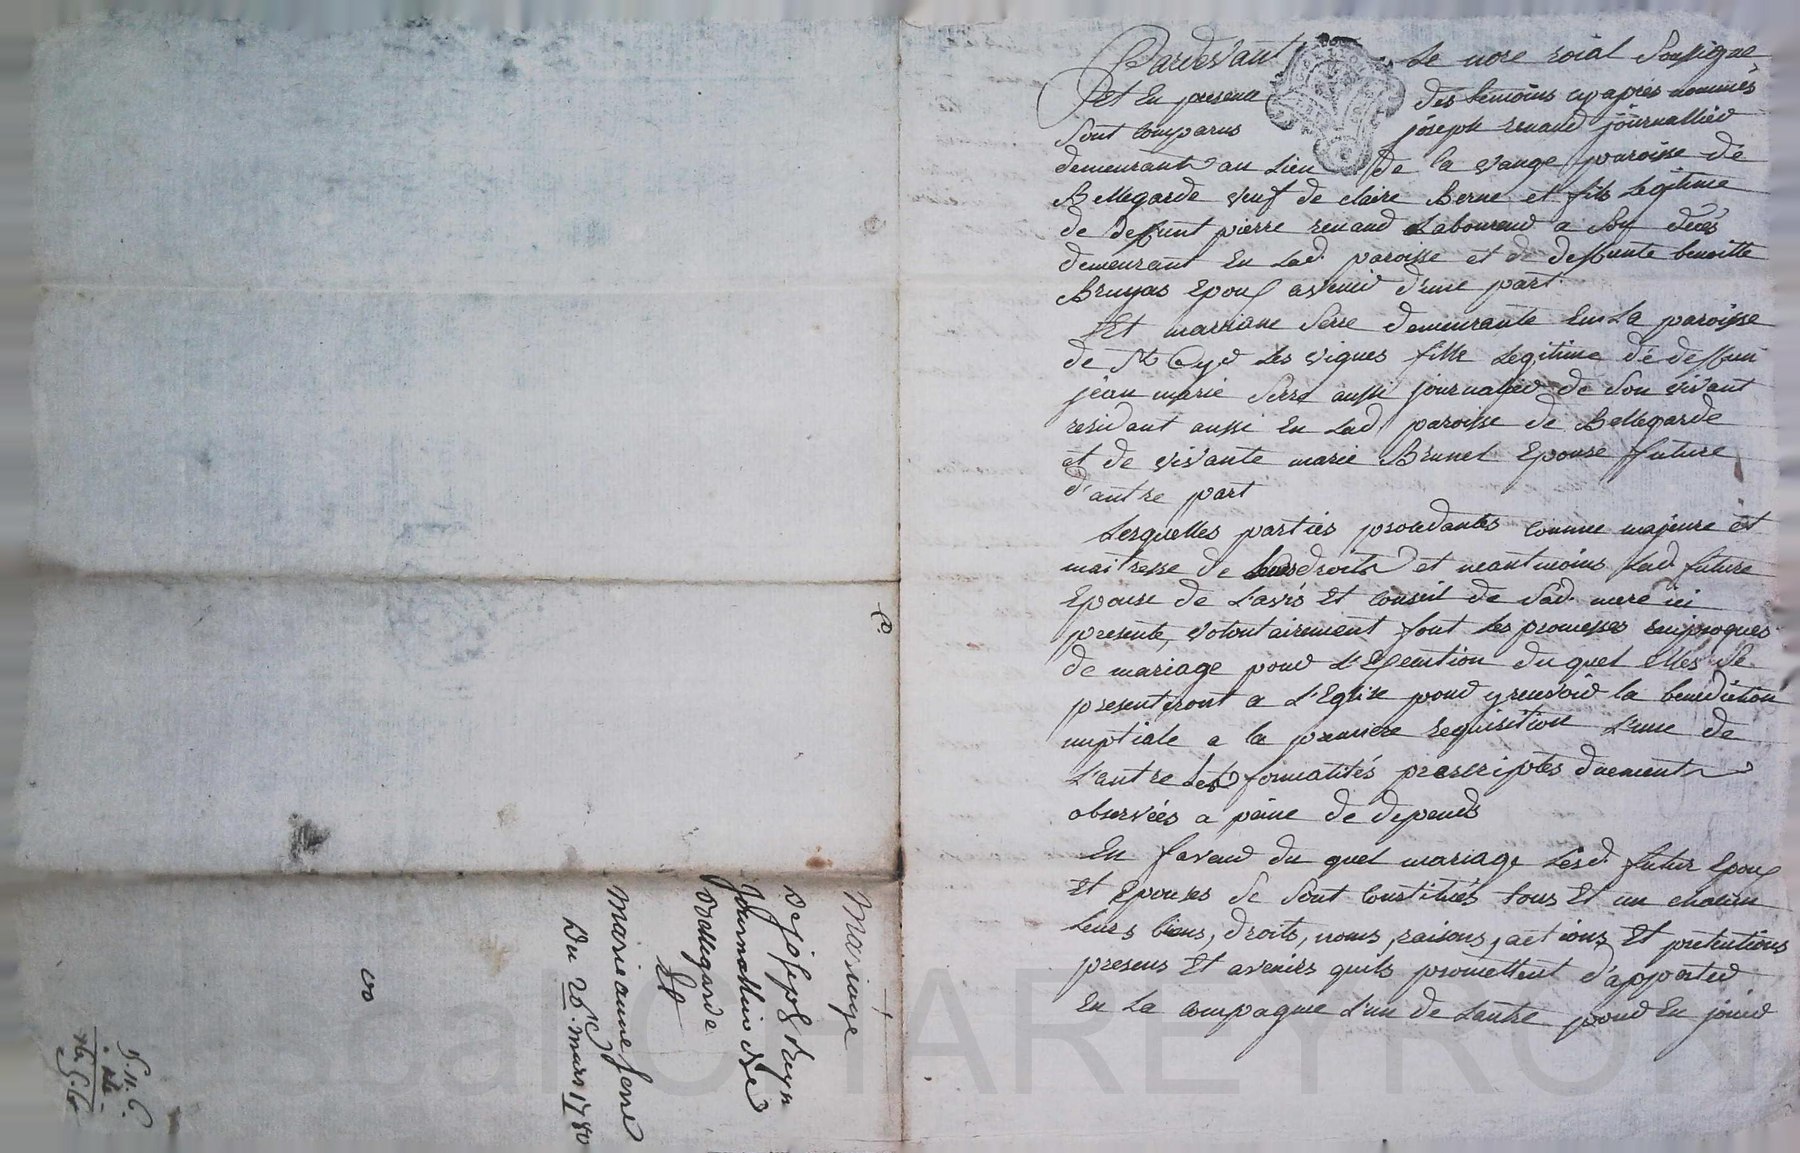 Pardevant Le nore roial Soussigne
Et En presence des temoins cy apres nommés
Sont comparus joseph renaud journallier
demeurant au Lieu de la vauge paroisse de
Bellegarde veuf de claire Berne et fils Legitime
de deffunt pierre renaud Laboureur a Son deces
demeurant En Lad. paroisse et de deffunte benoitte
Bruyas Epoux avenir d'une part.
Et marriane Serre demeurante En La paroisse
de St Cyr Les vignes fille Legitime de deffun
jean marie Serre aussi journalier de Son vivant
residant aussi En Lad. paroisse de Bellegarde
et de vivante marie Brunel Epouse future
d'autre part
Lesquelles parties procedantes comme majeure et
maitresse de Leurs droits et neantmoins Lad. future
Epouse de L'avis Et Conseil de Sad. mere ici
presente, volontairement font Les promesses reciproques
de mariage pour L'Execution du quel Elles Se
presenteront a L'Eglise pour y recevoir la benediction
nuptiale a la premiere requisition L'une de
L'autre Les formalités prescriptes duement
observées a peine de depends
En faveur du quel mariage Lesd. futur Epoux
Et Epouses Se Sont Constitués tous Et un chacun
Leurs biens, droits, noms, raisons, actions Et pretentions
presens Et avenirs quils promettent d'apporter
En La compagnie L'un de Lautre pour En jouir
Mariage
De joseph
Journallier De
Bellegarde
Et
Marie anne Serre
Du 26e. mars 1780
CHAREYRON